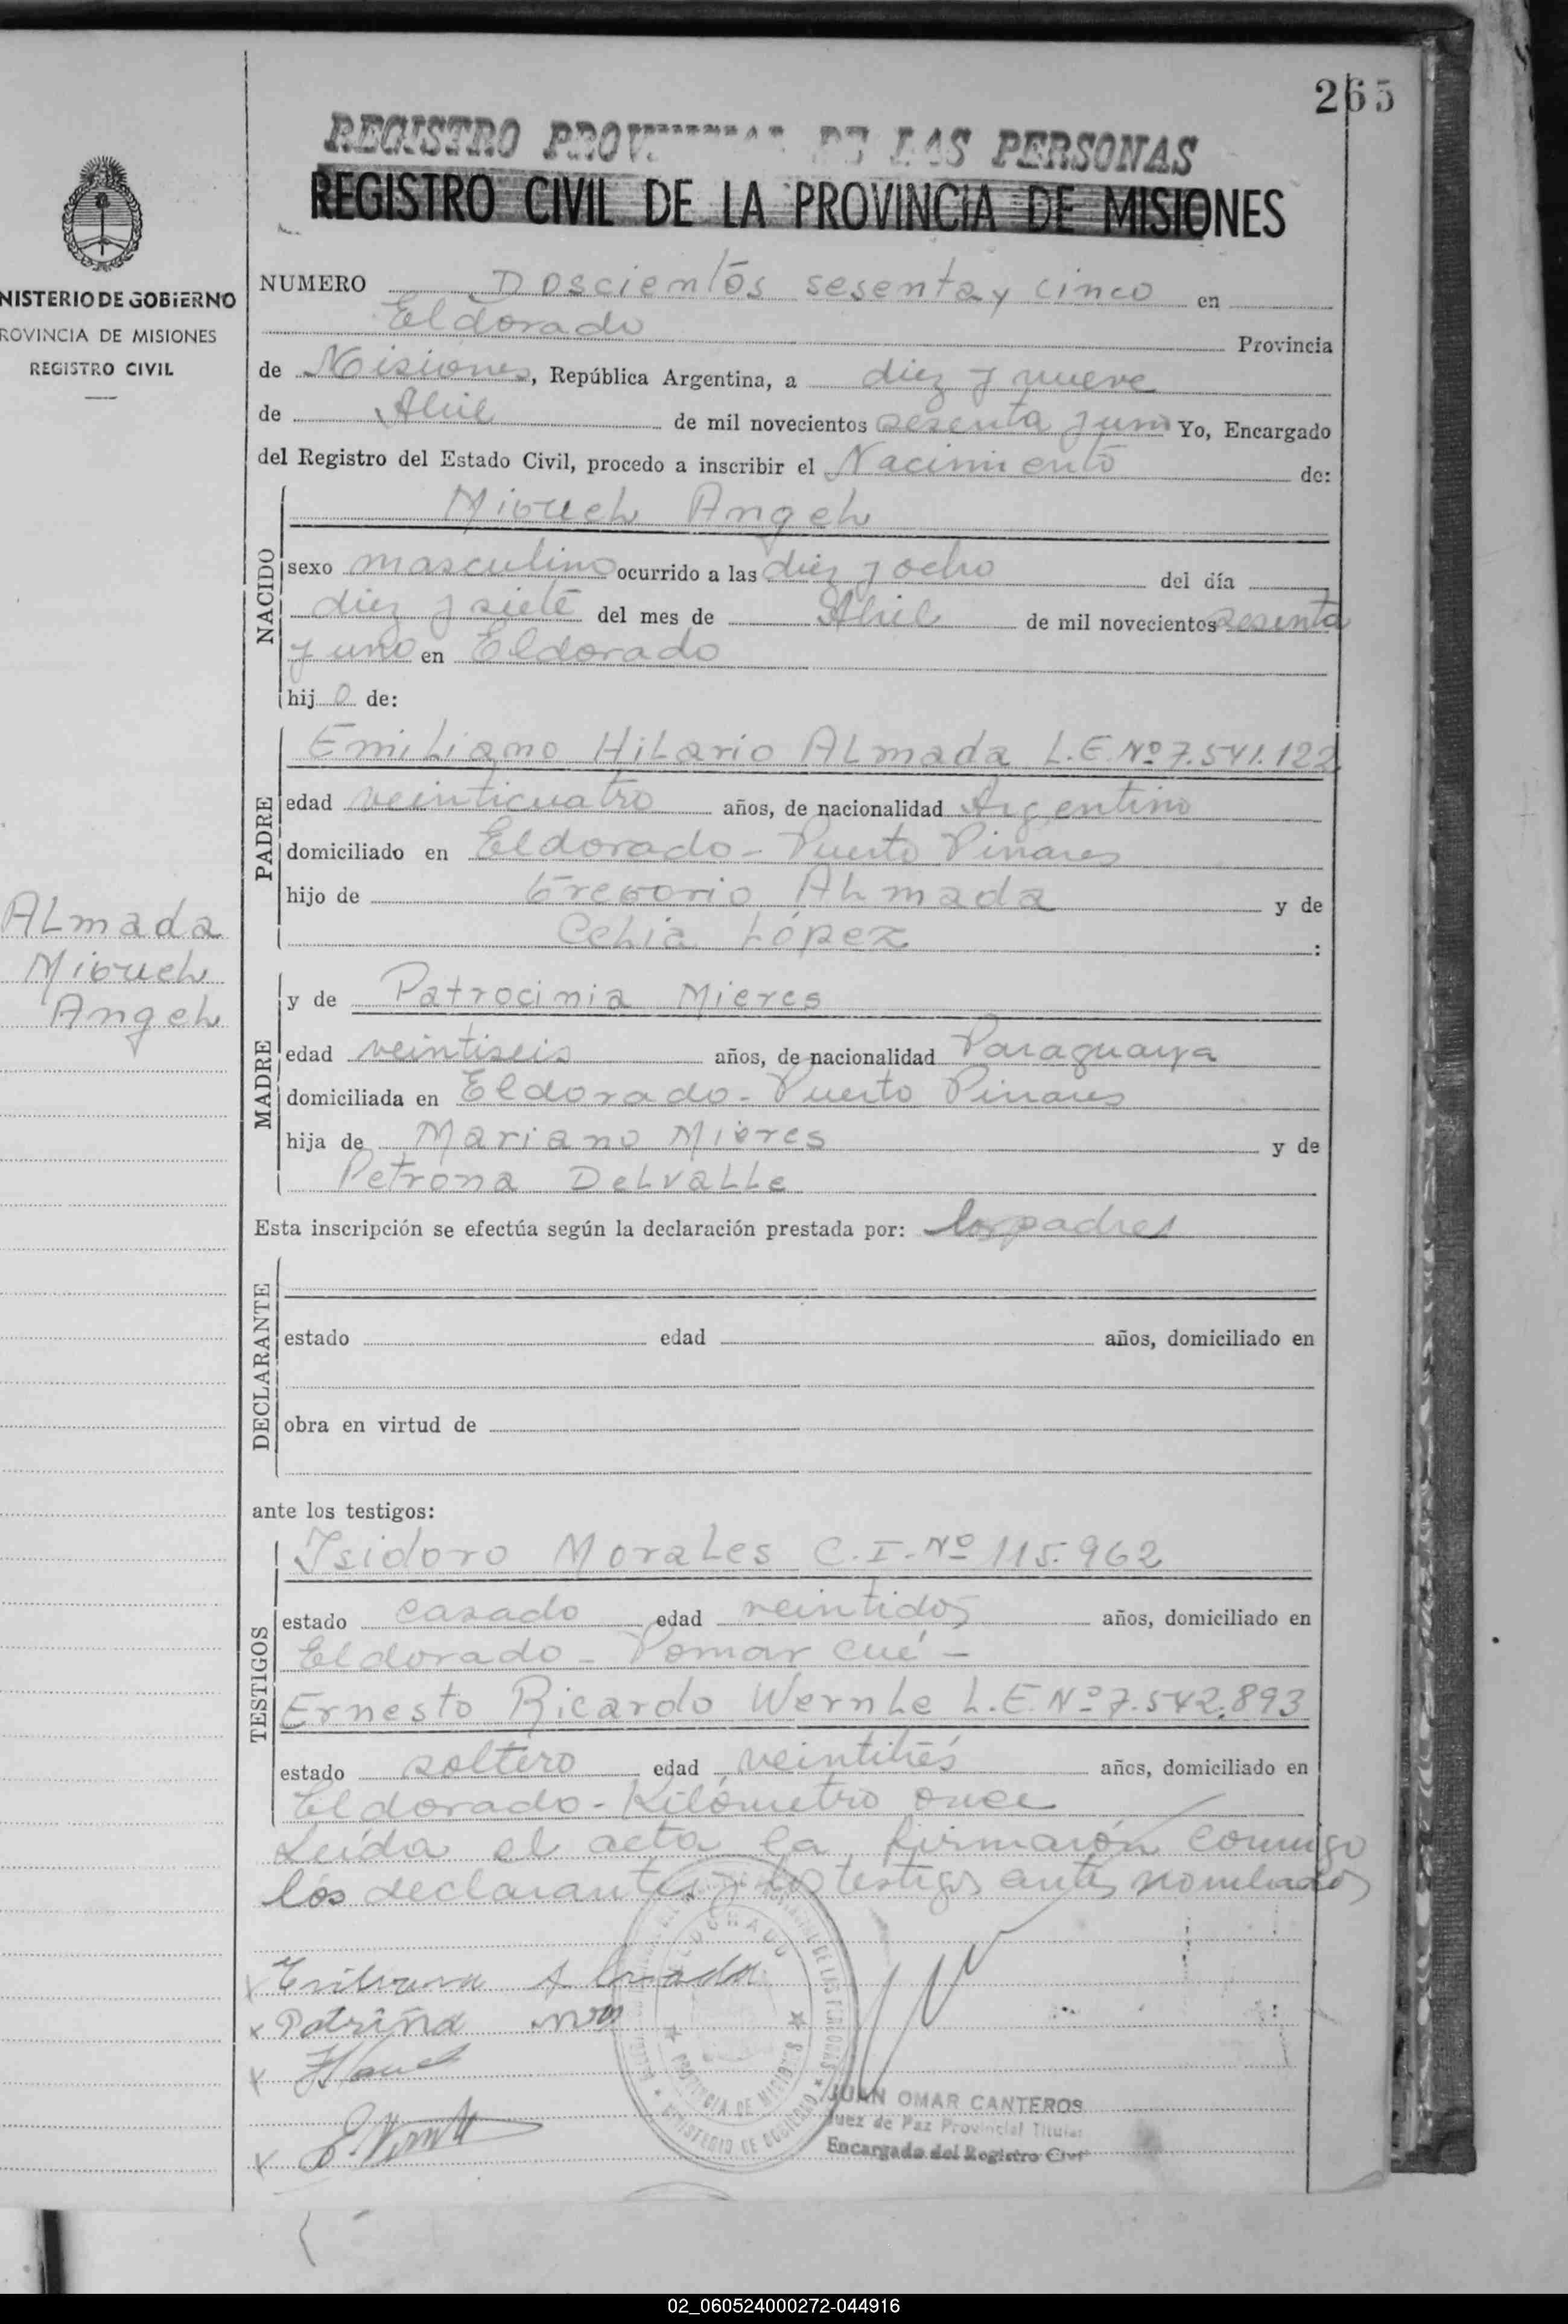 265
REGISTRO PROVINCIAL DE LAS PERSONAS
REGISTRO CIVIL DE LA PROVINCIA DE MISIONES
NISTERIO DE GOBIERNO
ROVINCIA DE MISIONES
REGISTRO CIVIL
NUMERO Doscientos sesenta y cinco en
Eldorado Provincia
de Misiones, República Argentina, a diez y nueve
de Abril de mil novecientos sesenta y uno Yo, Encargado
del Registro del Estado Civil, procedo a inscribir el Nacimiento de:
NACIDO
Miguel Angel
sexo masculino ocurrido a las diez y ocho del día
diez y siete del mes de Abril de mil novecientos sesenta
y uno en Eldorado
hij o de:
PADRE
Emiliano Hilario Almada L.E. Nº 7.541.122
edad veinticuatro años, de nacionalidad Argentino
domiciliado en Eldorado - Puerto Pinares
hijo de Gregorio Almada y de
Celia López :
Almada
Miguel
Angel
MADRE
y de Patrocinia Mieres
edad veintiseis años, de nacionalidad Paraguaya
domiciliada en Eldorado - Puerto Pinares
hija de Mariano Mieres y de
Petrona Delvalle
Esta inscripción se efectúa según la declaración prestada por: los padres
DECLARANTE
estado edad años, domiciliado en
obra en virtud de
ante los testigos:
TESTIGOS
Isidoro Morales C.I. Nº 115.962
estado casado edad veintidos años, domiciliado en
Eldorado - Pomar cué -
Ernesto Ricardo Wernle L.E. Nº 7.542.893
estado soltero edad veintitrés años, domiciliado en
Eldorado - Kilómetro once
Leída el acta la firmarón conmigo
los declarantes y los testigos antes nombrados
ELDORADO
PROVINCIA DE MISIONES
MINISTERIO DE GOBIERNO
JUAN OMAR CANTEROS
Juez de Paz Provincial Titular
Encargado del Registro Civil
02_060524000272-044916